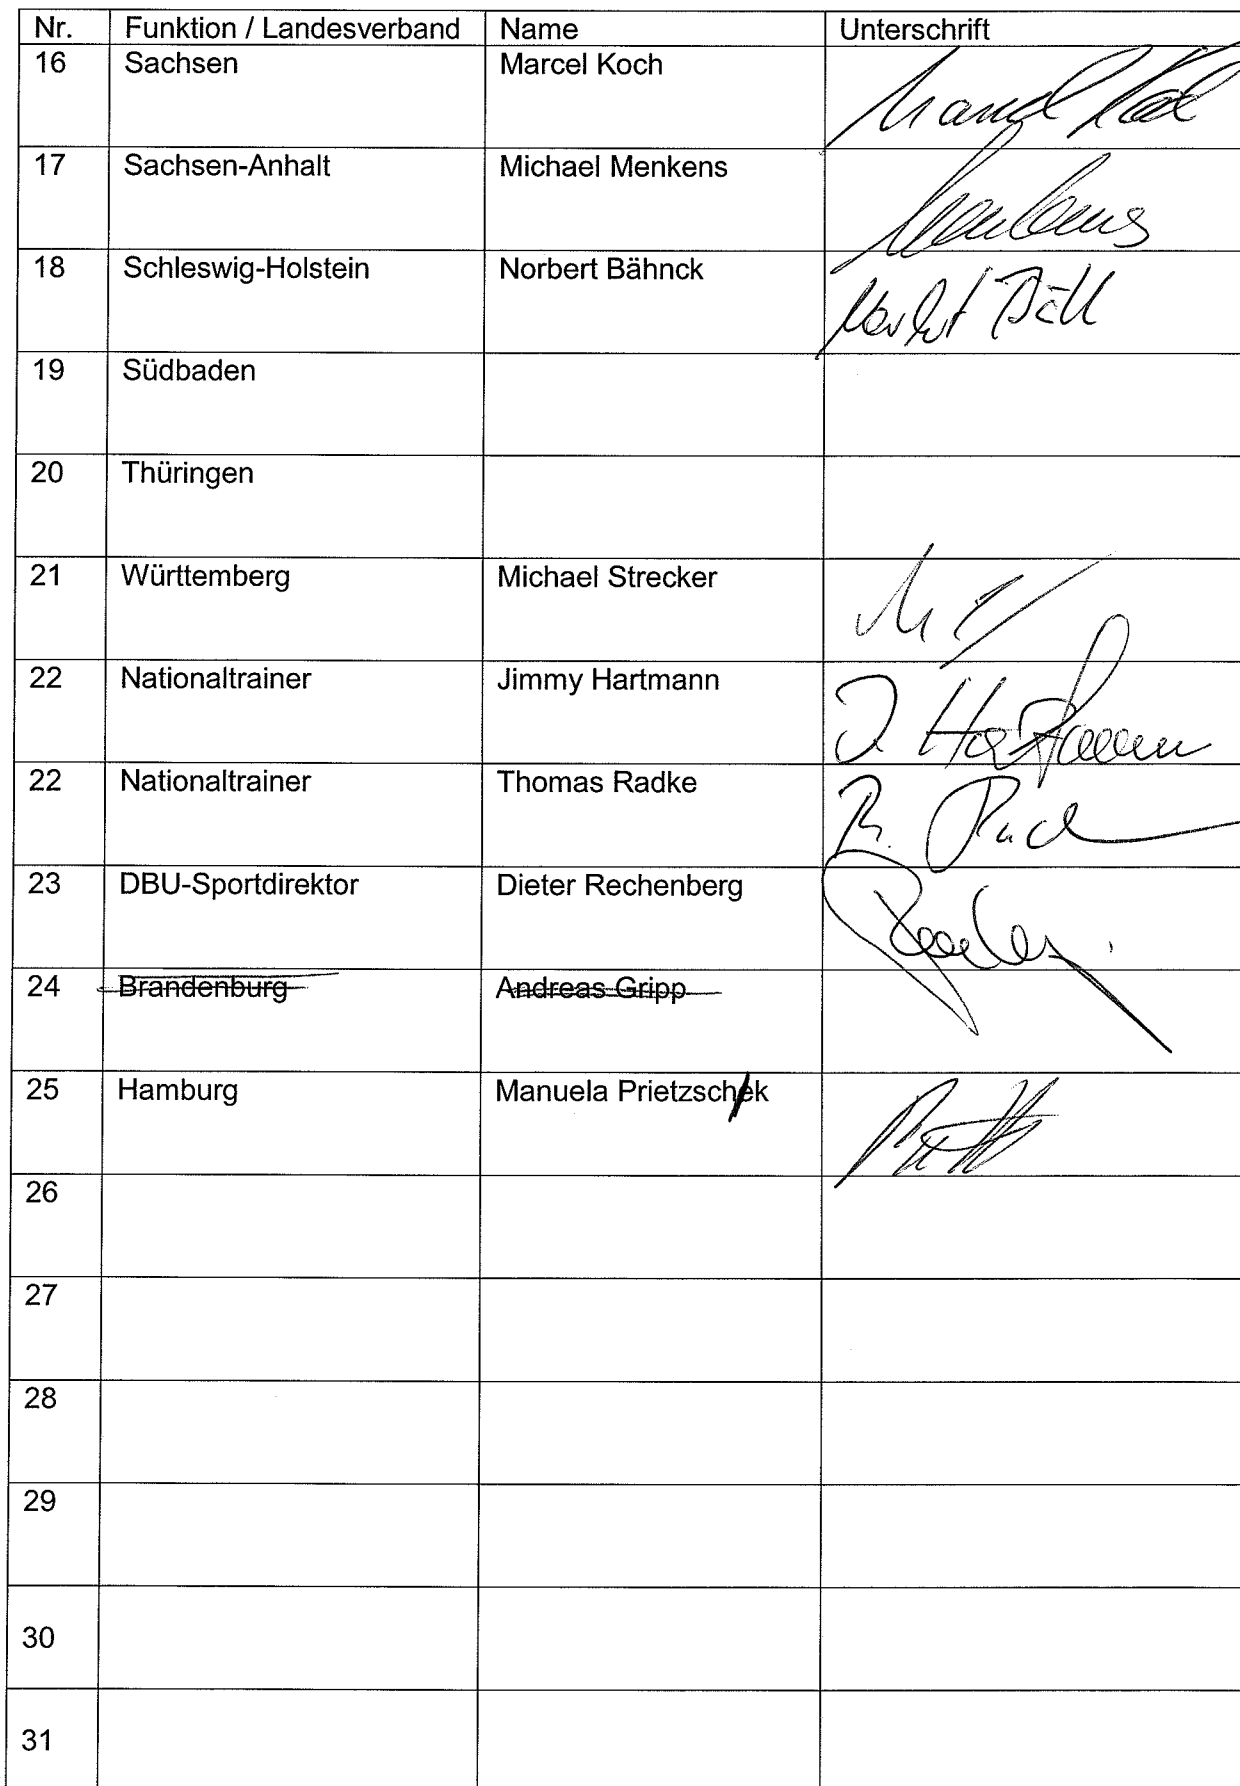 Nr. Funktion / Landesverband Name Unterschrift
16 Sachsen Marcel Koch Marcel Koch
17 Sachsen-Anhalt Michael Menkens Menkens
18 Schleswig-Holstein Norbert Bähnck Norbert
19 Südbaden
20 Thüringen
21 Württemberg Michael Strecker
22 Nationaltrainer Jimmy Hartmann J. Hartmann
22 Nationaltrainer Thomas Radke
23 DBU-Sportdirektor Dieter Rechenberg
24 Brandenburg Andreas Gripp
25 Hamburg Manuela Prietzschek
26
27
28
29
30
31